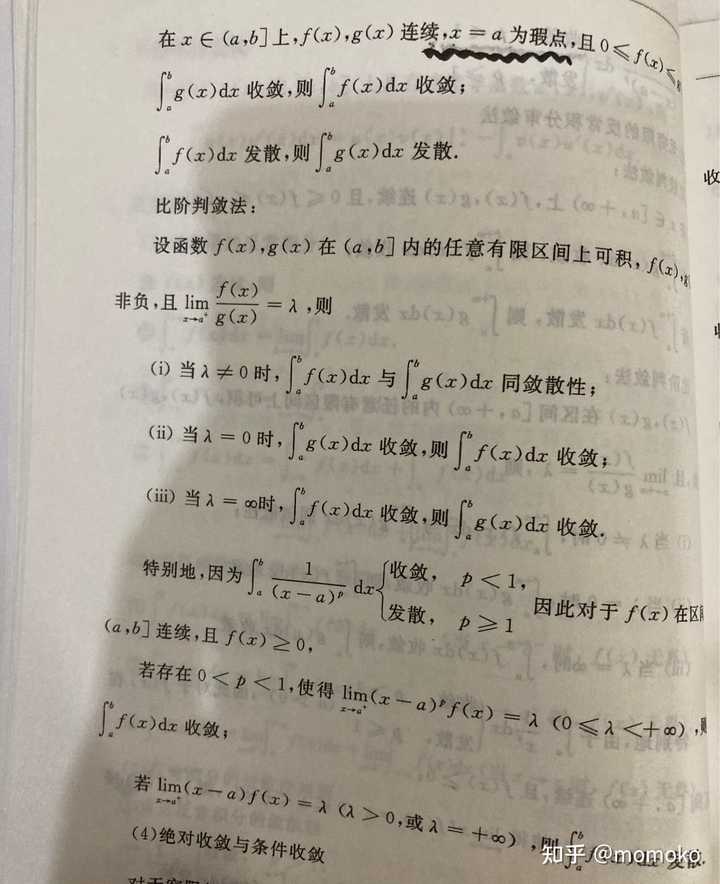 在 x ∈ (a,b] 上, f(x), g(x) 连续, x = a 为瑕点, 且 0 ≤ f(x) ≤
∫_a^b g(x)dx 收敛, 则 ∫_a^b f(x)dx 收敛;
∫_a^b f(x)dx 发散, 则 ∫_a^b g(x)dx 发散.
比阶判敛法:
设函数 f(x), g(x) 在 (a,b] 内的任意有限区间上可积, f(x),
非负, 且 lim_{x→a⁺} f(x)/g(x) = λ, 则
(i) 当 λ ≠ 0 时, ∫_a^b f(x)dx 与 ∫_a^b g(x)dx 同敛散性;
(ii) 当 λ = 0 时, ∫_a^b g(x)dx 收敛, 则 ∫_a^b f(x)dx 收敛;
(iii) 当 λ = ∞时, ∫_a^b f(x)dx 收敛, 则 ∫_a^b g(x)dx 收敛.
特别地, 因为 ∫_a^b 1/(x-a)^p dx { 收敛, p < 1, 发散, p ≥ 1 因此对于 f(x) 在区
(a,b] 连续, 且 f(x) ≥ 0,
若存在 0 < p < 1, 使得 lim_{x→a⁺} (x-a)^p f(x) = λ (0 ≤ λ < +∞),
∫_a^b f(x)dx 收敛;
若 lim_{x→a⁺} (x-a)f(x) = λ (λ > 0, 或 λ = +∞), 则 ∫_a^b f(x)dx 发散.
(4)绝对收敛与条件收敛
知乎 @momoko